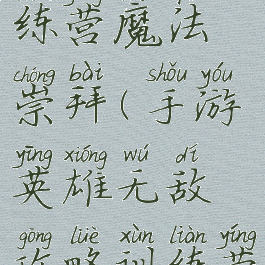 练营魔法
chóng bài shǒu yóu
崇拜(手游
yīng xióng wú dí
英雄无敌
gōng lüè xùn liàn yíng
攻略训练营